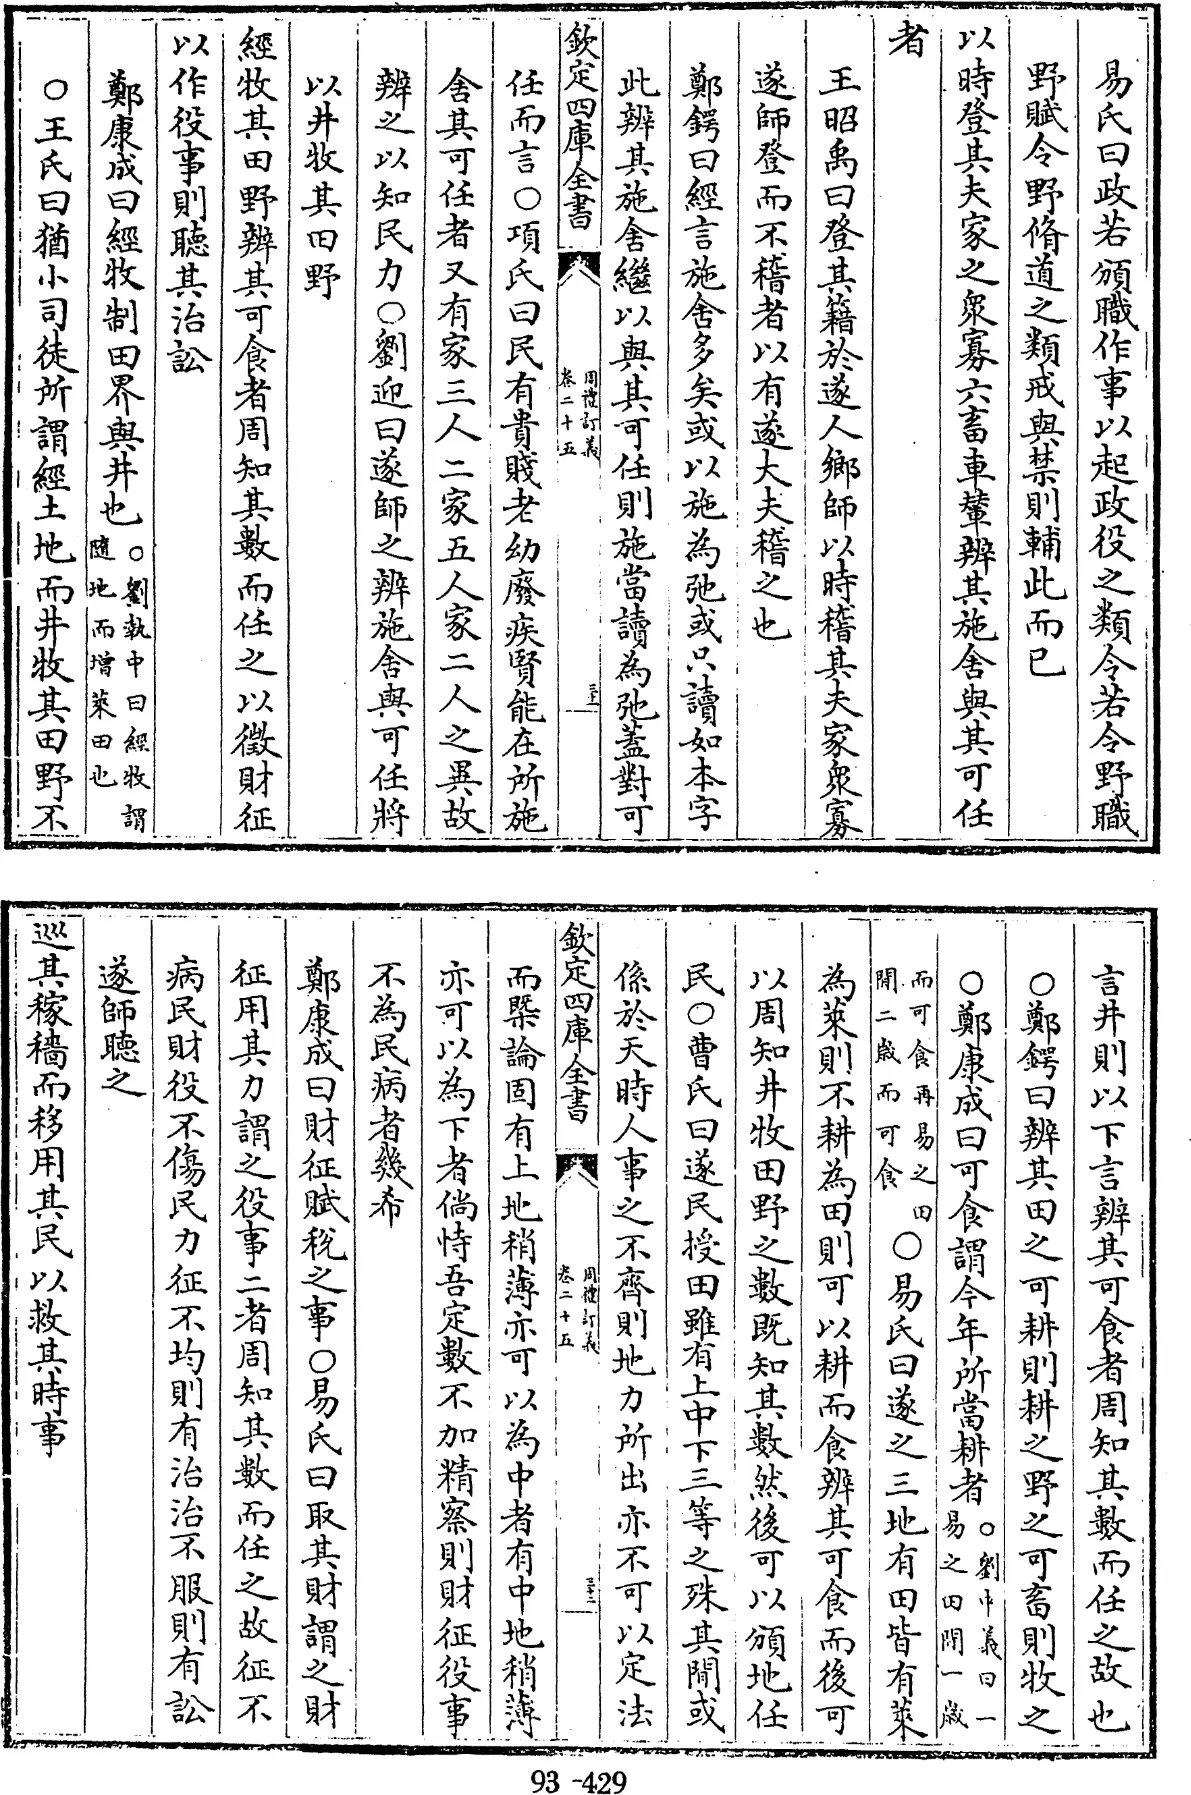 易氏曰政若頒職作事以起政役之類令若令野職
野賦令野脩道之類戒與禁則輔此而已
以時登其夫家之衆寡六畜車輦辨其施舍與其可任
者
王昭禹曰登其籍於遂人鄉師以時稽其夫家衆寡
遂師登而不稽者以有遂大夫稽之也
鄭鍔曰經言施舍多矣或以施為弛或只讀如本字
此辨其施舍繼以與其可任則施當讀為弛蓋對可
欽定四庫全書
周禮訂義
卷二十五
任而言○項氏曰民有貴賤老幼廢疾賢能在所施
舍其可任者又有家三人二家五人家二人之異故
辨之以知民力○劉迎曰遂師之辨施舍與可任將
以井牧其田野
經牧其田野辨其可食者周知其數而任之以徵財征
以作役事則聽其治訟
鄭康成曰經牧制田界與井也○劉執中曰經牧謂
隨地而增萊田也
○王氏曰猶小司徒所謂經土地而井牧其田野不
言井則以下言辨其可食者周知其數而任之故也
○鄭鍔曰辨其田之可耕則耕之野之可畜則牧之
○鄭康成曰可食謂今年所當耕者○劉中義曰一
易之田間一歲
而可食再易之田
間二歲而可食
○易氏曰遂之三地有田皆有萊
為萊則不耕為田則可以耕而食辨其可食而後可
以周知井牧田野之數既知其數然後可以頒地任
民○曹氏曰遂民授田雖有上中下三等之殊其間或
係於天時人事之不齊則地力所出亦不可以定法
欽定四庫全書
周禮訂義
卷二十五
而槩論固有上地稍薄亦可以為中者有中地稍薄
亦可以為下者倘恃吾定數不加精察則財征役事
不為民病者幾希
鄭康成曰財征賦稅之事○易氏曰取其財謂之財
征用其力謂之役事二者周知其數而任之故征不
病民財役不傷民力征不均則有治治不服則有訟
遂師聽之
巡其稼穡而移用其民以救其時事
93-429